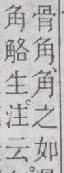 骨角角之如
角觡生注云